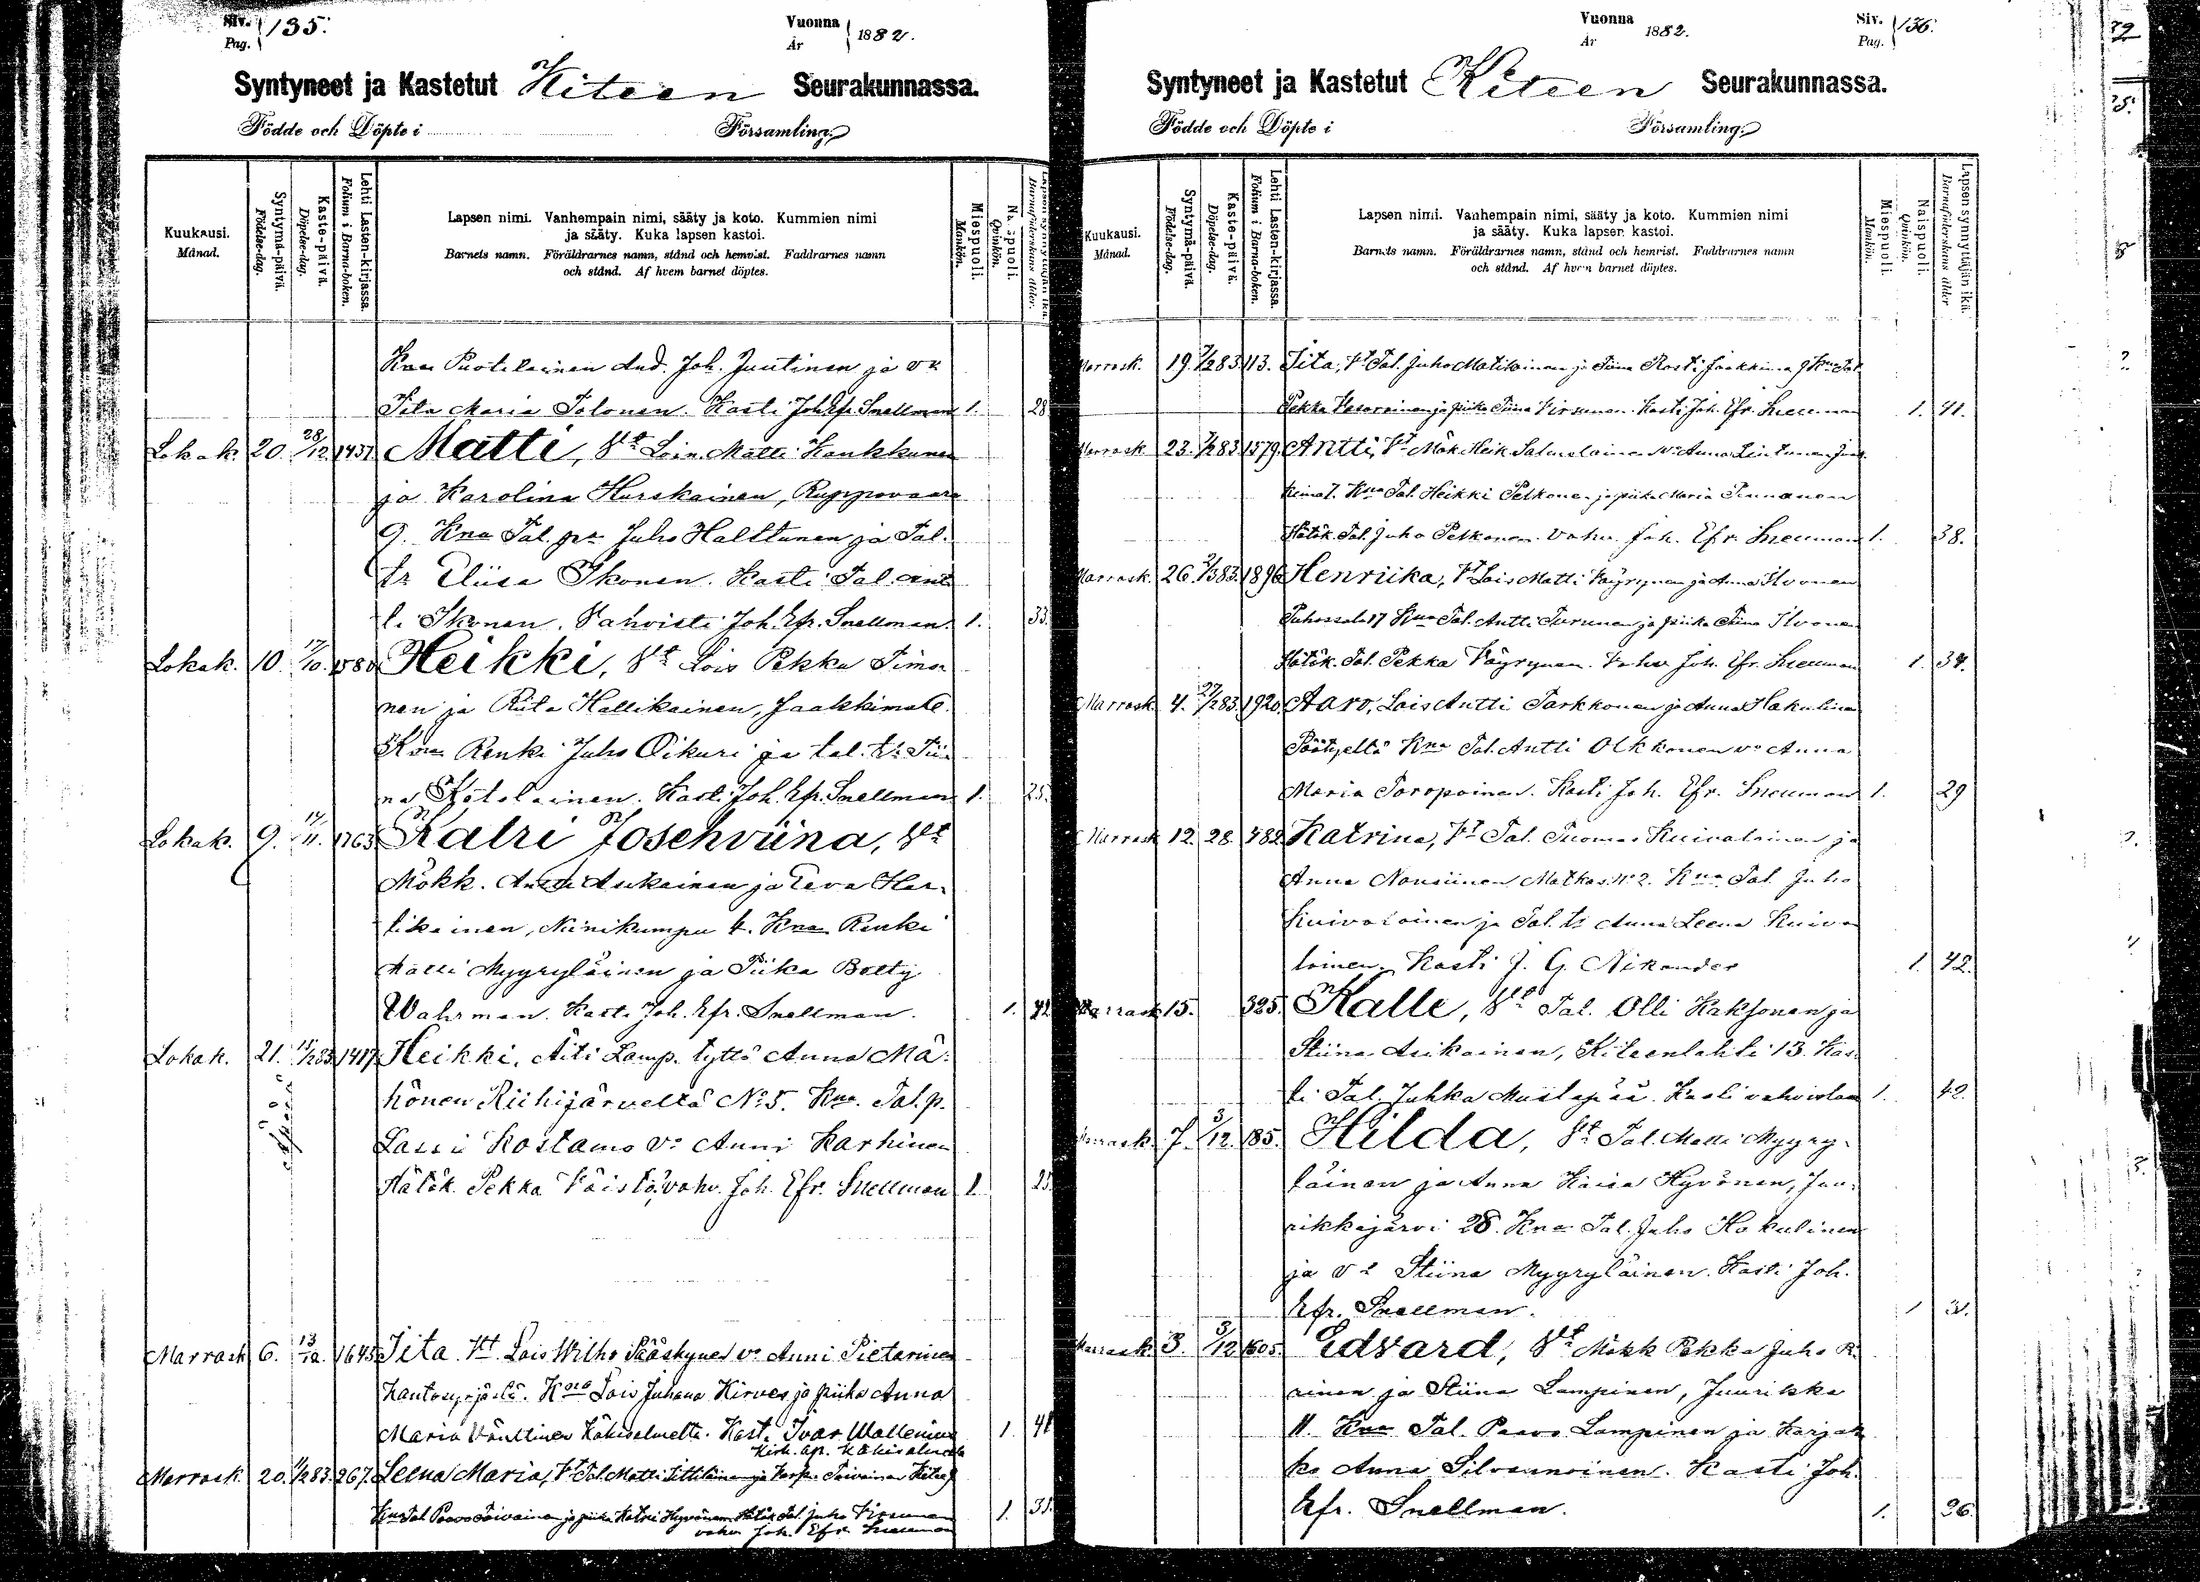 Siv. Pag. 135.
Vuonna År 1882.
Syntyneet ja Kastetut Kiteen Seurakunnassa.
Födde och Döpte i Församling.
Kuukausi. Månad.
Syntymä-päivä. Födelse-dag.
Kaste-päivä. Döpelse-dag.
Lehti Lasten-kirjassa. Folium i Barna-boken.
Lapsen nimi. Vanhempain nimi, sääty ja koto. Kummien nimi
ja sääty. Kuka lapsen kastoi.
Barnets namn. Föräldrarnes namn, stånd och hemvist. Faddrarnes namn
och stånd. Af hvem barnet döptes.
Miespuoli. Mankön.
Naispuoli. Qvinkön.
Lapsen synnyttäjän ikä. Barnaföderskans ålder.
Kna Puotilainen And. Joh. Juutinen ja vo
Iita Maria Tolonen. Kasti Joh. Efr. Snellman 1. 28
Lokak. 20. 28/12. 1437. Matti, Vt Loin. Matti Kaukkunen
ja Karolina Hurskainen, Ruppovaara
9. Kna Tal. pa Juho Halttunen ja Tal.
tr Eliisa Ikonen. Kasti Tal. Ant
ti Ikonen. Vahvisti Joh. Efr. Snellman. 1. 33.
Lokak. 10. 17/10. 1580 Heikki, Vt Lois Pekka Timo
nen ja Riita Hallikainen, Jaakkimal.
Kna Renki Juho Oikuri ja tal. tr Tii
na Kotolainen. Kasti Joh. Efr. Snellman 1. 25.
Lokak. 9. 14/11. 1763 Katri Josehviina, Vt
Mökk. Antti Asikainen ja Eeva Hal
likainen, Niinikumpu 4. Kna Renki
Matti Myyryläinen ja Piika Betty
Wahrman. Kasti Joh. Efr. Snellman. 1. 42
Lokak. 21. 11/283. 1417 Heikki, Äiti Lamp. tyttö Anna Mä-
hönen Riihijärveltä No 5. Kna. Tal. p.
Lassi Kostamo vo Anni Karhinen
Hätäk. Pekka Väistö, vahv. Joh. Efr. Snellman 1. 25.
Marrask 6. 13/12. 1645 Iita Vt Lois Wilho Pääskynen vo Anni Pietarinen
Kantosyrjästä. Kna Lois Juhana Kirves ja piika Anna
Maria Vänttinen Käkisalmelta. Kasti Ivar Wallenius 1. 41
kirk. ap. Käkisalmella
Marrask. 20. 11/283. 267. Leena Maria, Vt Tal. Matti Littiläinen ja Karo. Toivainen Kitee 9
Kna Tal Paavo Toivainen ja piika Katri Hyvönen Hätäk Tal. Juho Hirvonen 1. 35.
vahv. Joh. Efr. Snellman
Vuonna År 1882.
Siv. Pag. 136.
Syntyneet ja Kastetut Kiteen Seurakunnassa.
Födde och Döpte i Församling.
Kuukausi. Månad.
Syntymä-päivä. Födelse-dag.
Kaste-päivä. Döpelse-dag.
Lehti Lasten-kirjassa. Folium i Barna-boken.
Lapsen nimi. Vanhempain nimi, sääty ja koto. Kummien nimi
ja sääty. Kuka lapsen kastoi.
Barnets namn. Föräldrarnes namn, stånd och hemvist. Faddrarnes namn
och stånd. Af hvem barnet döptes.
Miespuoli. Mankön.
Naispuoli. Qvinkön.
Lapsen synnyttäjän ikä. Barnaföderskans ålder
Marrask. 19. 7/283 113. Iita, Vt Tal. Juho Matikainen ja Tiina Rosti Jaakkima 9 Kna Tal
Pekka Vasarainen ja piika Tiina Hirvonen. Kasti Joh. Efr. Snellman 1. 41.
Marrask 23. 7/283 1579. Antti, Vt Mök. Heik Salmelainen vo Anna Lintunen Jaa
kima 7. Kna Tal. Heikki Pelkonen ja piika Maria Pennanen
Hätäk. Tal. Juho Pelkonen. Vahv. Joh. Efr. Snellman 1. 38.
Marrask. 26. 2/383. 1896 Henriika, Vt Lois Matti Väyrynen ja Anna Ilvonen
Puhossalo 17 Kna Tal. Antti Turunen ja piika Tiina Ilvonen
Hätäk. Tal. Pekka Väyrynen. Vahv. Joh. Efr. Snellman 1. 34.
Marrask. 4. 27/283. 1920. Aaro, Lois Antti Tarkkonen ja Anna Hakulinen
Päätyeltä Kna Tal. Antti Olkkonen vo Anna
Maria Toropainen. Kasti Joh. Efr. Snellman 1. 29
Marrask 12. 28. 482. Katrina, Vt Tal. Tuomas Kuivalainen ja
Anna Nousiinen Matkas. No 2. Kna Tal. Juho
Kuivalainen ja Tal. tr Anna Leena Kuiva
lainen. Kasti J. G. Nikander 1. 42.
Marrask 15. 325. Kalle, Vt Tal. Olli Kaksonen ja
Stiina Asikainen, Kiteenlahti 13. Kas
ti Tal. Juhka Mustapää. Kasti vahvistam 1. 42.
Marrask. 7. 3/12. 185. Hilda, Vt Tal. Matti Myyry-
läinen ja Anna Kaisa Hyvönen, Juu-
rikkajärvi 28. Kna Tal. Juho Hakulinen
ja vo Stiina Myyryläinen. Kasti Joh.
Efr. Snellman. 1 31.
Marrask. 3. 3/12 1605. Edvard, Vt Mökk Pekka Juho R.
rinen ja Stiina Lampinen, Juurikka
11. Kna Tal. Paavo Lampinen ja Karjak
ko Anna Silvennoinen. Kasti Joh.
Efr. Snellman. 1. 26.